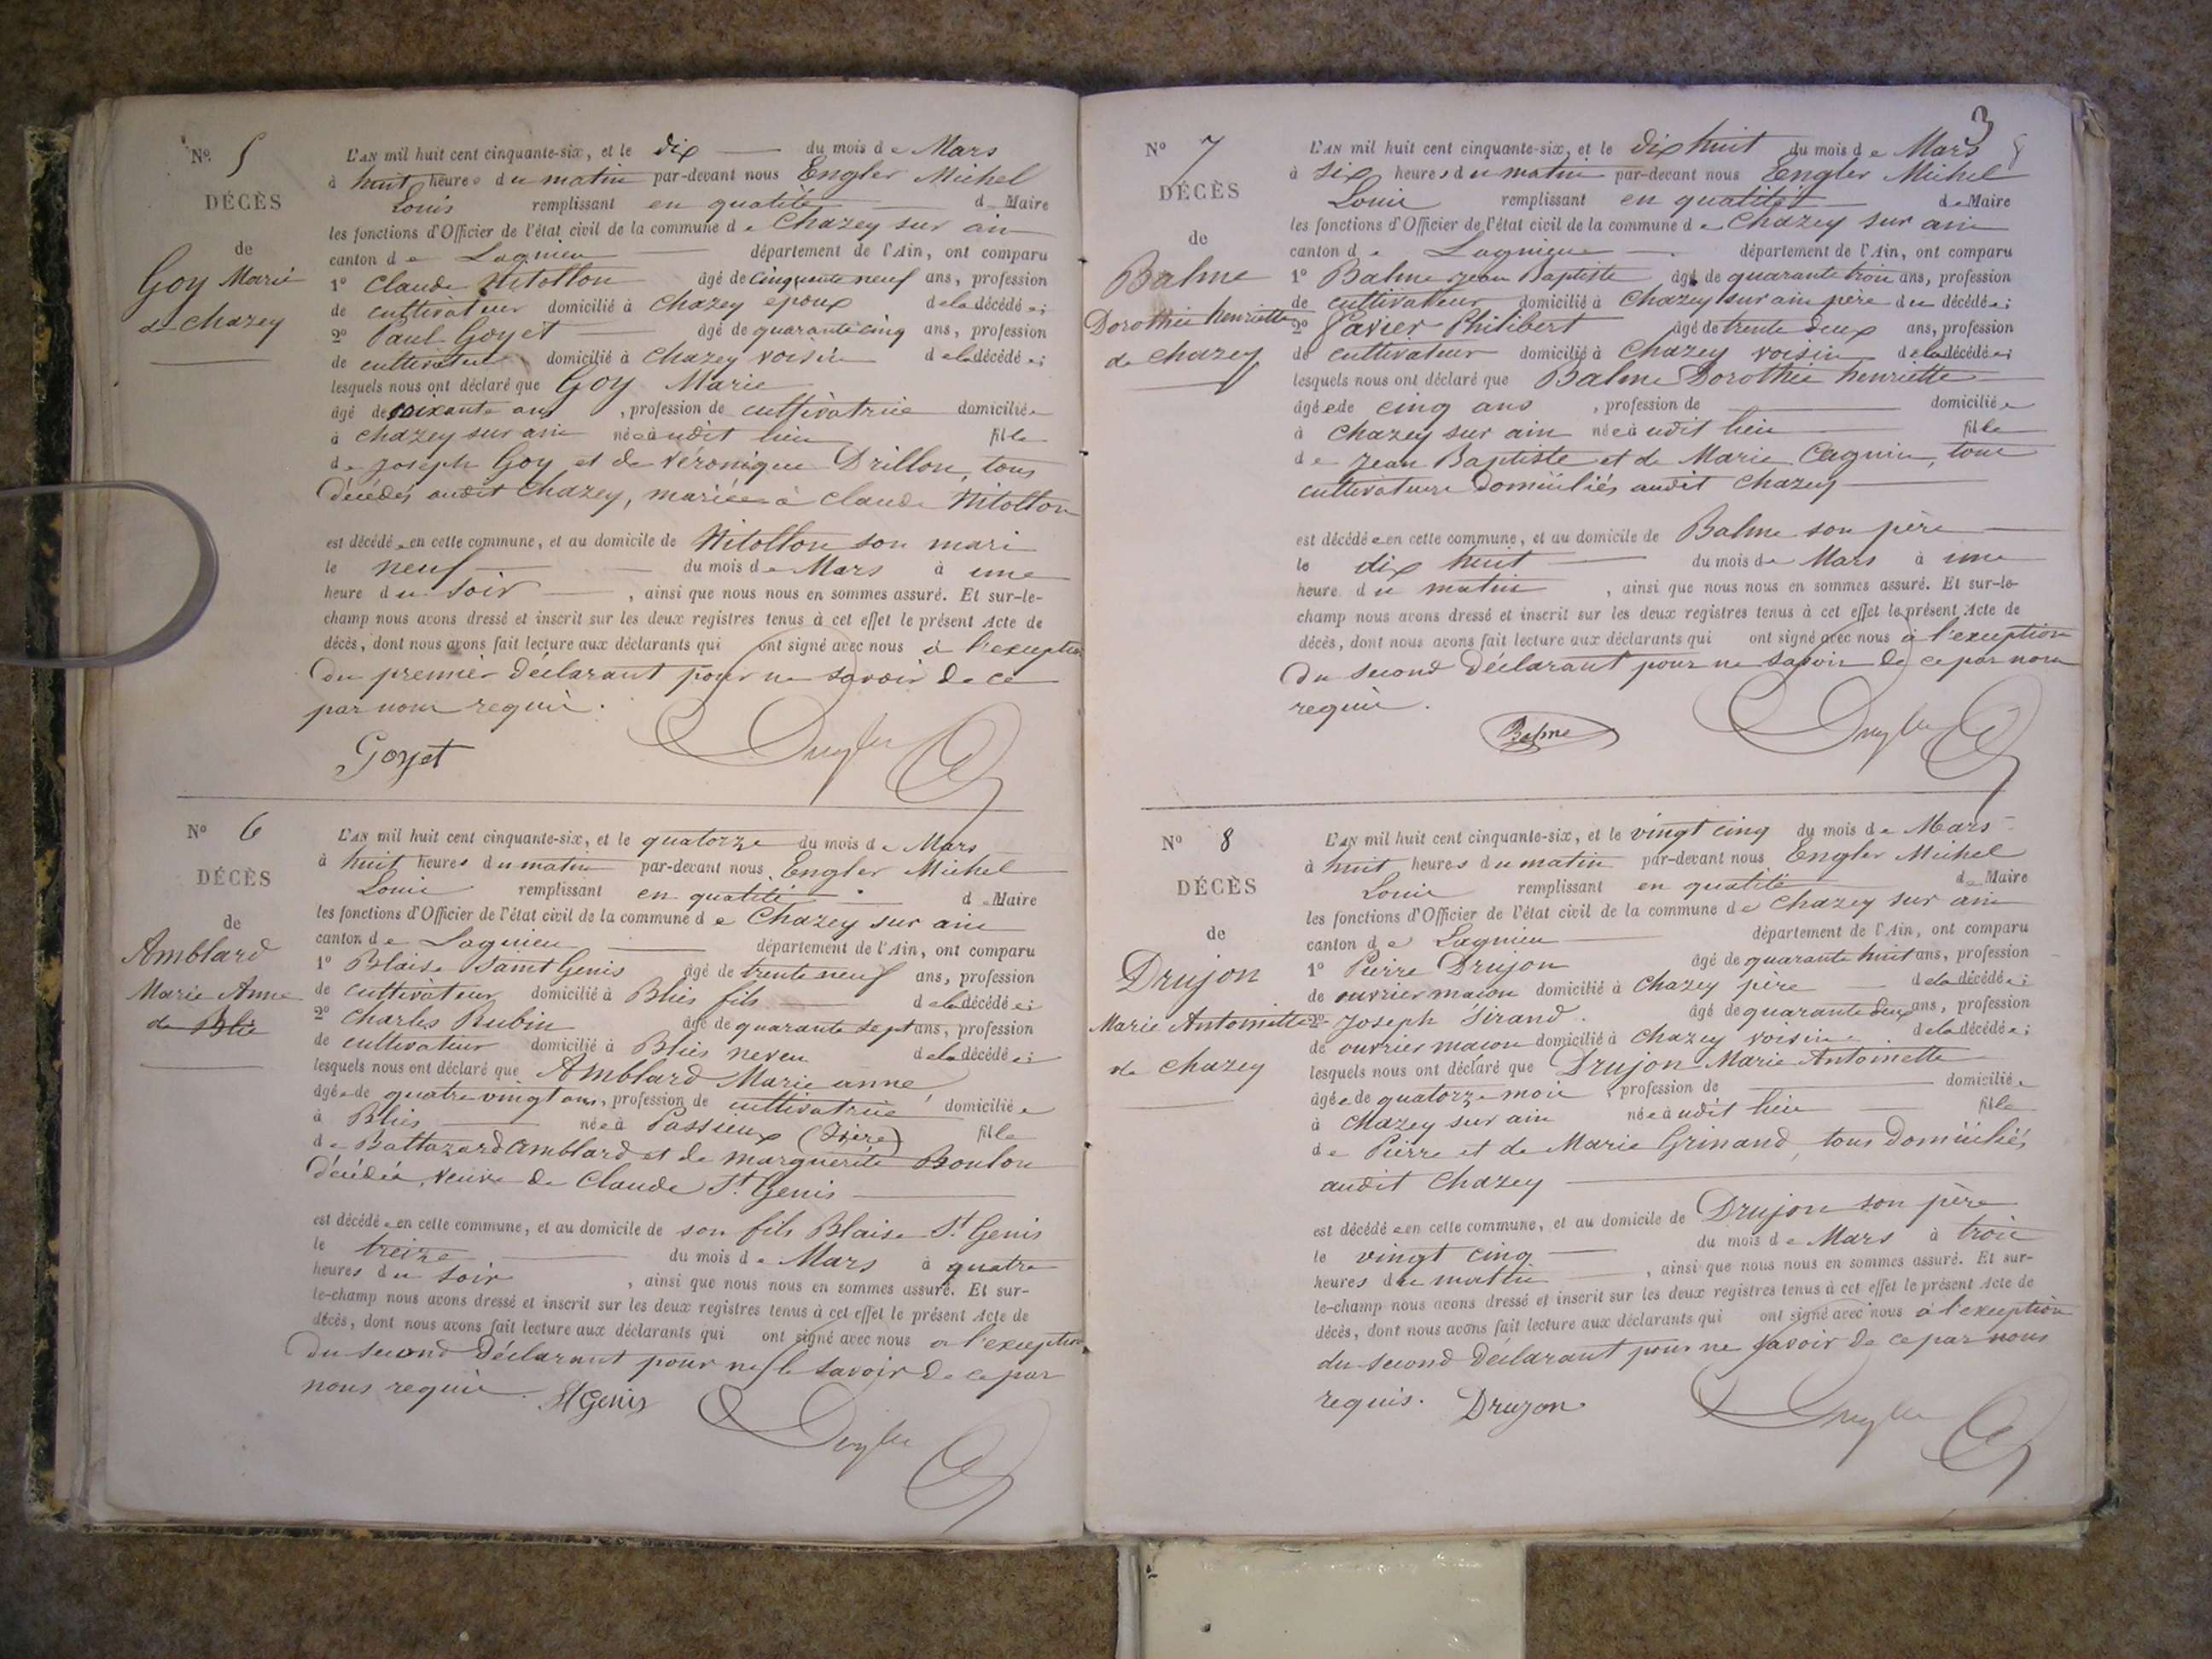 Nº 5
DÉCÈS
de
Goy Marie
de chazey
L'AN mil huit cent cinquante-six, et le dix du mois de Mars
à huit heures du matin par-devant nous Engler Michel
Louis remplissant en qualité de Maire
les fonctions d'Officier de l'état civil de la commune de Chazey sur ain
canton de Lagnieu département de l'Ain, ont comparu
1º Claude Nitollon âgé de cinquante neuf ans, profession
de cultivateur domicilié à Chazey epoux de la décédée;
2º Paul Goyet âgé de quarante cinq ans, profession
de cultivateur domicilié à Chazey voisin de la décédée;
lesquels nous ont déclaré que Goy Marie
âgé de soixante ans, profession de cultivatrice domiciliée
à chazey sur ain née audit lieu fille
de joseph Goy et de Véronique Drillon, tous
décédés audit Chazey, mariée à Claude Nitollon
est décédée en cette commune, et au domicile de Nitollon son mari
le neuf du mois de Mars à une
heure du soir, ainsi que nous nous en sommes assuré. Et sur-le-
champ nous avons dressé et inscrit sur les deux registres tenus à cet effet le présent Acte de
décès, dont nous avons fait lecture aux déclarants qui ont signé avec nous à l'exception
du premier déclarant pour ne savoir de ce
par nous requis.
Goyet Engler
Nº 6
DÉCÈS
de
Amblard
Marie Anne
de Blie
L'AN mil huit cent cinquante-six, et le quatorze du mois de Mars
à huit heures du matin par-devant nous Engler Michel
Louis remplissant en qualité de Maire
les fonctions d'Officier de l'état civil de la commune de Chazey sur ain
canton de Lagnieu département de l'Ain, ont comparu
1º Blaise Saint Genis âgé de trente neuf ans, profession
de cultivateur domicilié à Blies fils de la décédée;
2º Charles Rubin âgé de quarante sept ans, profession
de cultivateur domicilié à Blies neveu de la décédée;
lesquels nous ont déclaré que Amblard Marie anne
âgée de quatre vingt ans, profession de cultivatrice domiciliée
à Blies née à Passieux (Isère) fille
de Baltazard Amblard et de marguerite Boulon
décédés, veuve de Claude St Genis
est décédée en cette commune, et au domicile de son fils Blaise St Genis
le treize du mois de Mars à quatre
heures du soir, ainsi que nous nous en sommes assuré. Et sur-
le-champ nous avons dressé et inscrit sur les deux registres tenus à cet effet le présent Acte de
décès, dont nous avons fait lecture aux déclarants qui ont signé avec nous a l'exception
du second déclarant pour ne le savoir de ce par
nous requis. St Genis Engler
3
Nº 7
DÉCÈS
de
Balme
Dorothée henriette
de chazey
L'AN mil huit cent cinquante-six, et le dix huit du mois de Mars
à six heures du matin par-devant nous Engler Michel
Louis remplissant en qualité de Maire
les fonctions d'Officier de l'état civil de la commune de Chazey sur ain
canton de Lagnieu département de l'Ain, ont comparu
1º Balme jean Baptiste âgé de quarante trois ans, profession
de cultivateur domicilié à Chazey sur ain père du décédée;
2º Philibert âgé de trente deux ans, profession
de cultivateur domicilié à Chazey voisin de la décédée;
lesquels nous ont déclaré que Balme Dorothée henriette
âgée de cinq ans, profession de domiciliée
à Chazey sur ain née audit lieu fille
de jean Baptiste et de Marie Cagnin, tous
cultivateurs domiciliés audit Chazey
est décédée en cette commune, et au domicile de Balme son père
le dix huit du mois de Mars à une
heure du matin, ainsi que nous nous en sommes assuré. Et sur-le-
champ nous avons dressé et inscrit sur les deux registres tenus à cet effet le présent Acte de
décès, dont nous avons fait lecture aux déclarants qui ont signé avec nous à l'exception
du second déclarant pour ne savoir de ce par nous
requis.
Balme Engler
Nº 8
DÉCÈS
de
Drujon
Marie Antoinette
de chazey
L'AN mil huit cent cinquante-six, et le vingt cinq du mois de Mars
à huit heures du matin par-devant nous Engler Michel
Louis remplissant en qualité de Maire
les fonctions d'Officier de l'état civil de la commune de Chazey sur ain
canton de Lagnieu département de l'Ain, ont comparu
1º Pierre Drujon âgé de quarante huit ans, profession
de ouvrier maçon domicilié à Chazey père de la décédée;
2º Joseph Sirand âgé de quarante deux ans, profession
de ouvrier maçon domicilié à Chazey voisin de la décédée;
lesquels nous ont déclaré que Drujon Marie Antoinette
âgée de quatorze mois, profession de domiciliée
à Chazey sur ain née audit lieu fille
de Pierre et de Marie Grinand, tous domiciliés
audit Chazey
est décédée en cette commune, et au domicile de Drujon son père
le vingt cinq du mois de Mars à trois
heures du matin, ainsi que nous nous en sommes assuré. Et sur-
le-champ nous avons dressé et inscrit sur les deux registres tenus à cet effet le présent Acte de
décès, dont nous avons fait lecture aux déclarants qui ont signé avec nous à l'exception
du second déclarant pour ne savoir de ce par nous
requis. Drujon Engler